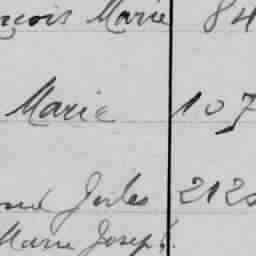 Marie 84
Marie 107
Jules 212
Marie Joseph